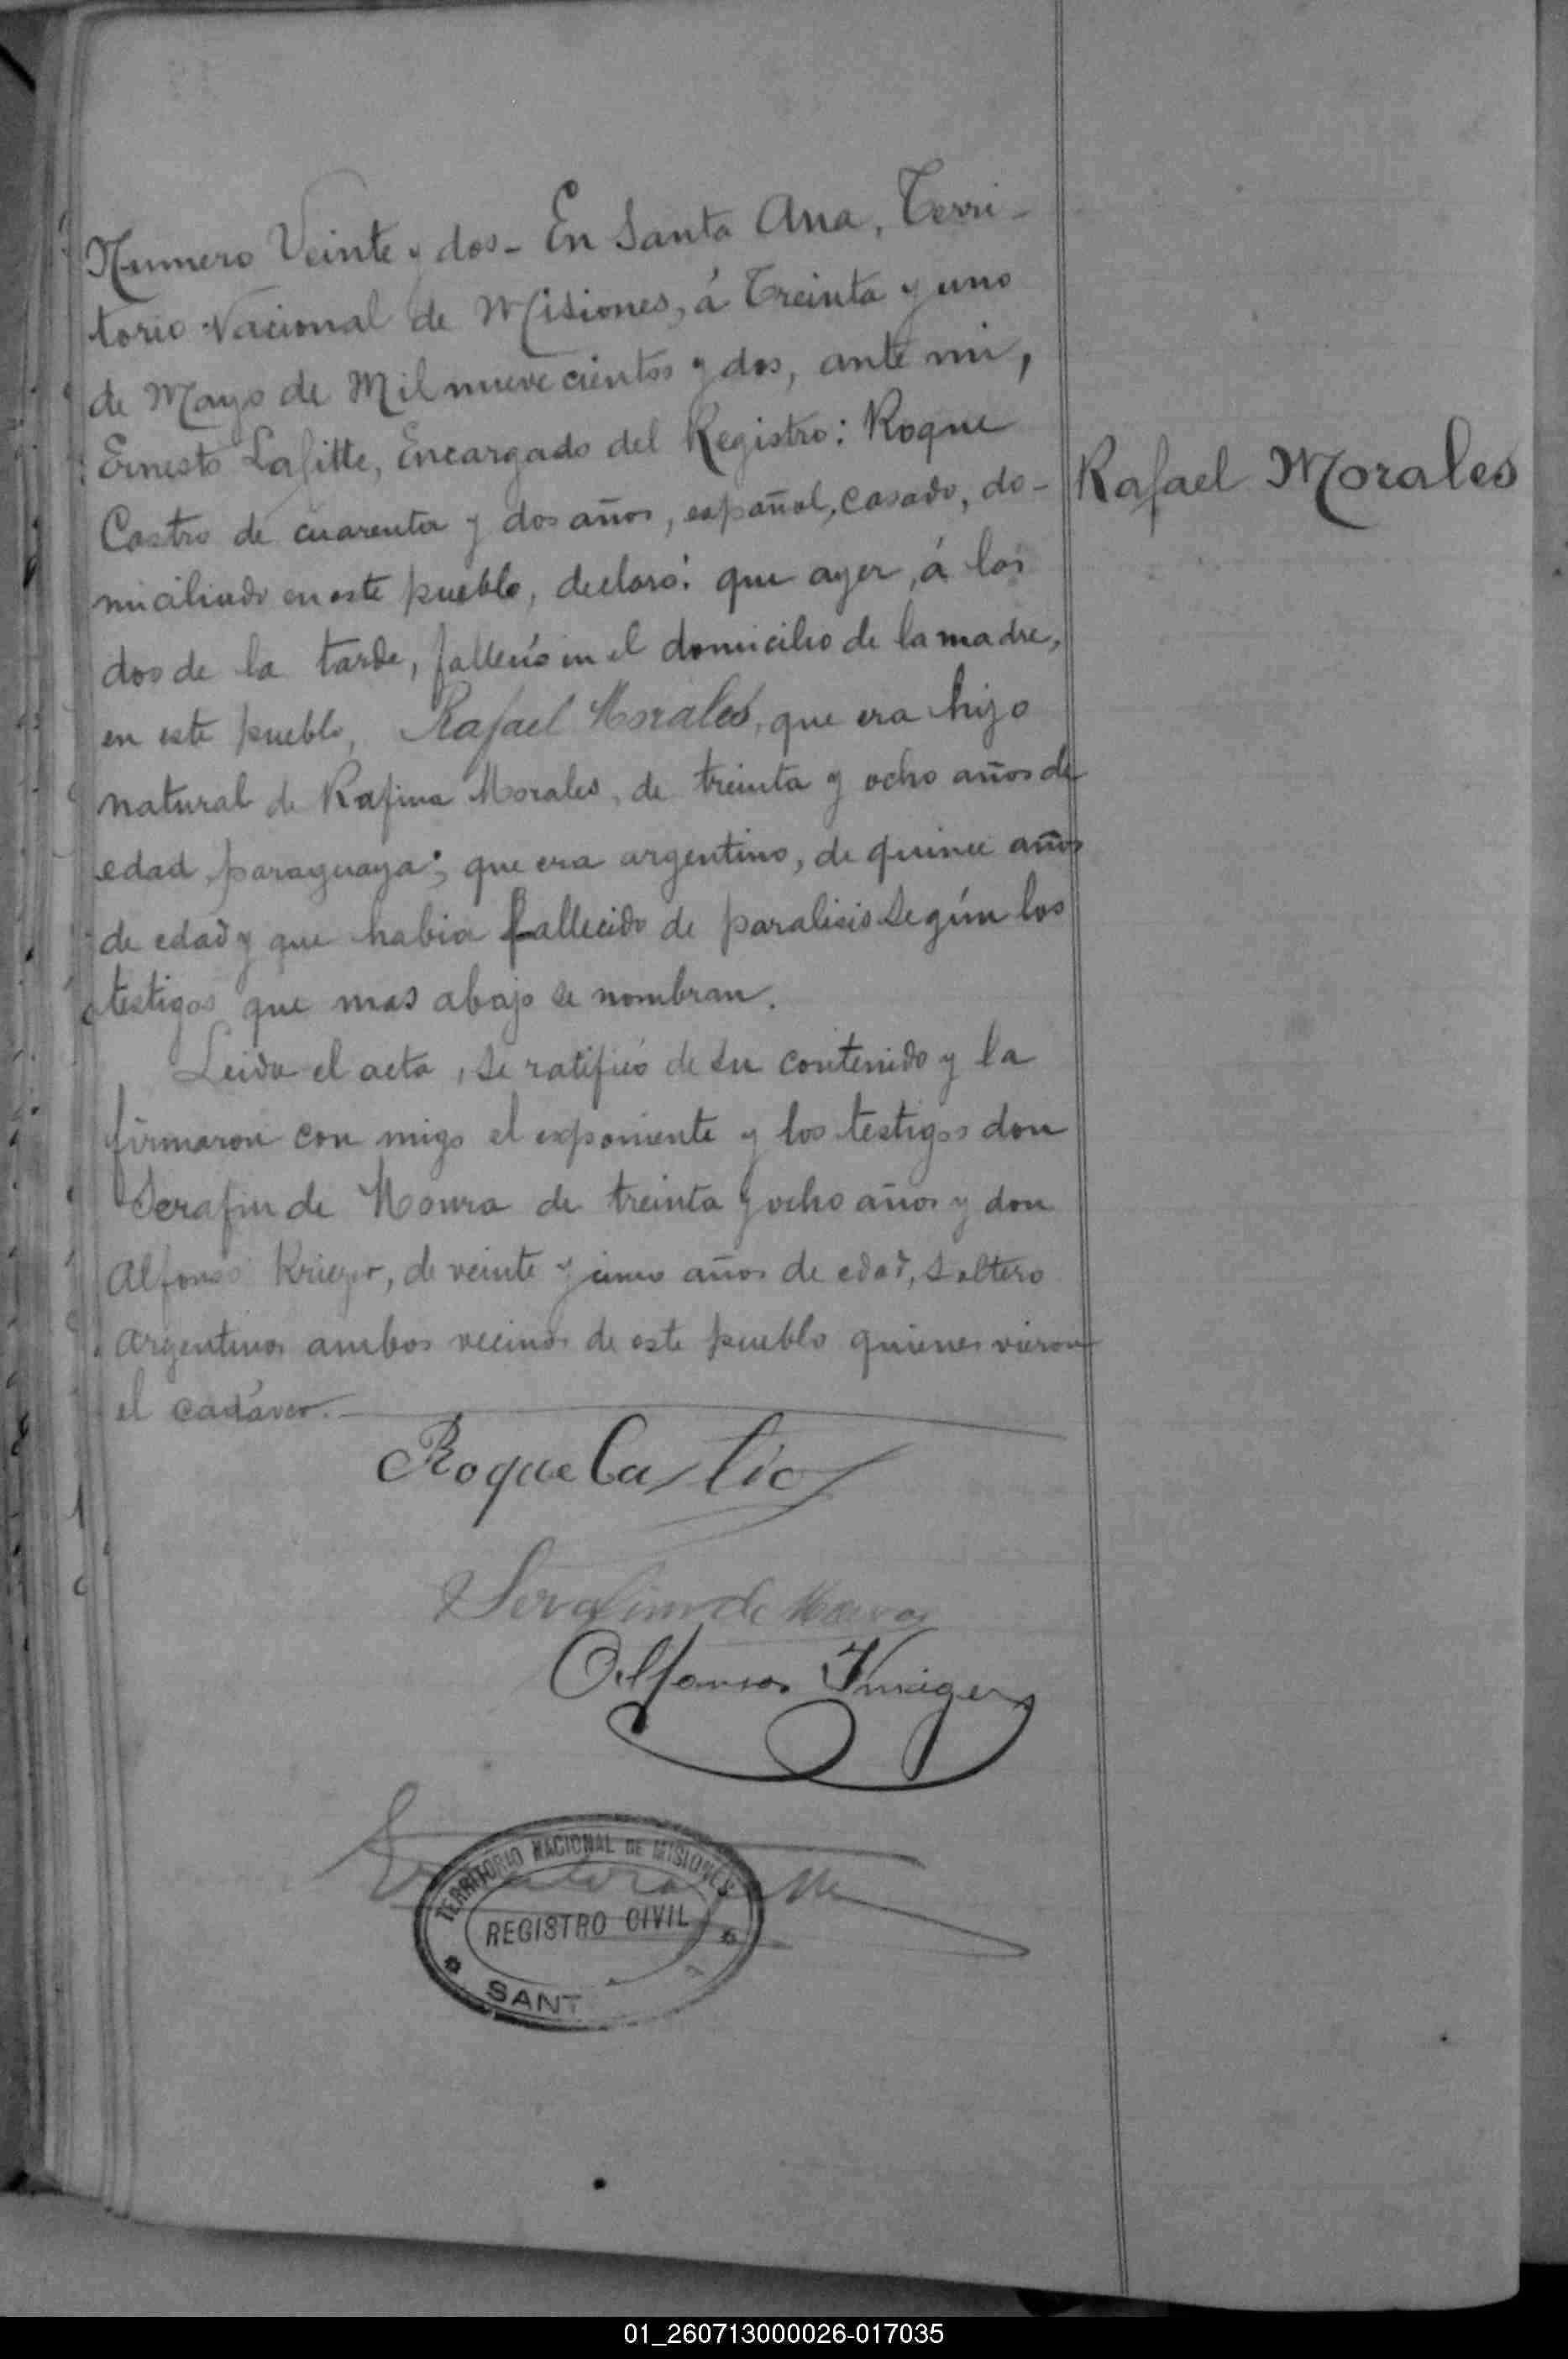 Numero Veinte y dos - En Santa Ana, Terri-
torio Nacional de Misiones, á Treinta y uno
de Mayo de Mil nuevecientos y dos, ante mi,
Ernesto Lafitte, Encargado del Registro: Roque
Castro de cuarenta y dos años, español, casado, do-
miciliado en este pueblo, declaró: que ayer, á las
dos de la tarde, falleció en el domicilio de la madre,
en este pueblo, Rafael Morales, que era hijo
natural de Rafina Morales, de treinta y ocho años de
edad, paraguaya; que era argentino, de quince años
de edad y que habia fallecido de paralisis según los
testigos que mas abajo se nombran.
Leida el acta, se ratificó de su contenido y la
firmaron con migo el exponente y los testigos don
Serafin de Moura de treinta y ocho años y don
Alfonso Krieger, de veinte y cinco años de edad, soltero
argentinos ambos vecinos de este pueblo quienes vieron
el cadáver.
Rafael Morales
Roque Castro
Serafim de Moura
Alfonso Krieger
TERRITORIO NACIONAL DE MISIONES
REGISTRO CIVIL
SANT
01_260713000026-017035